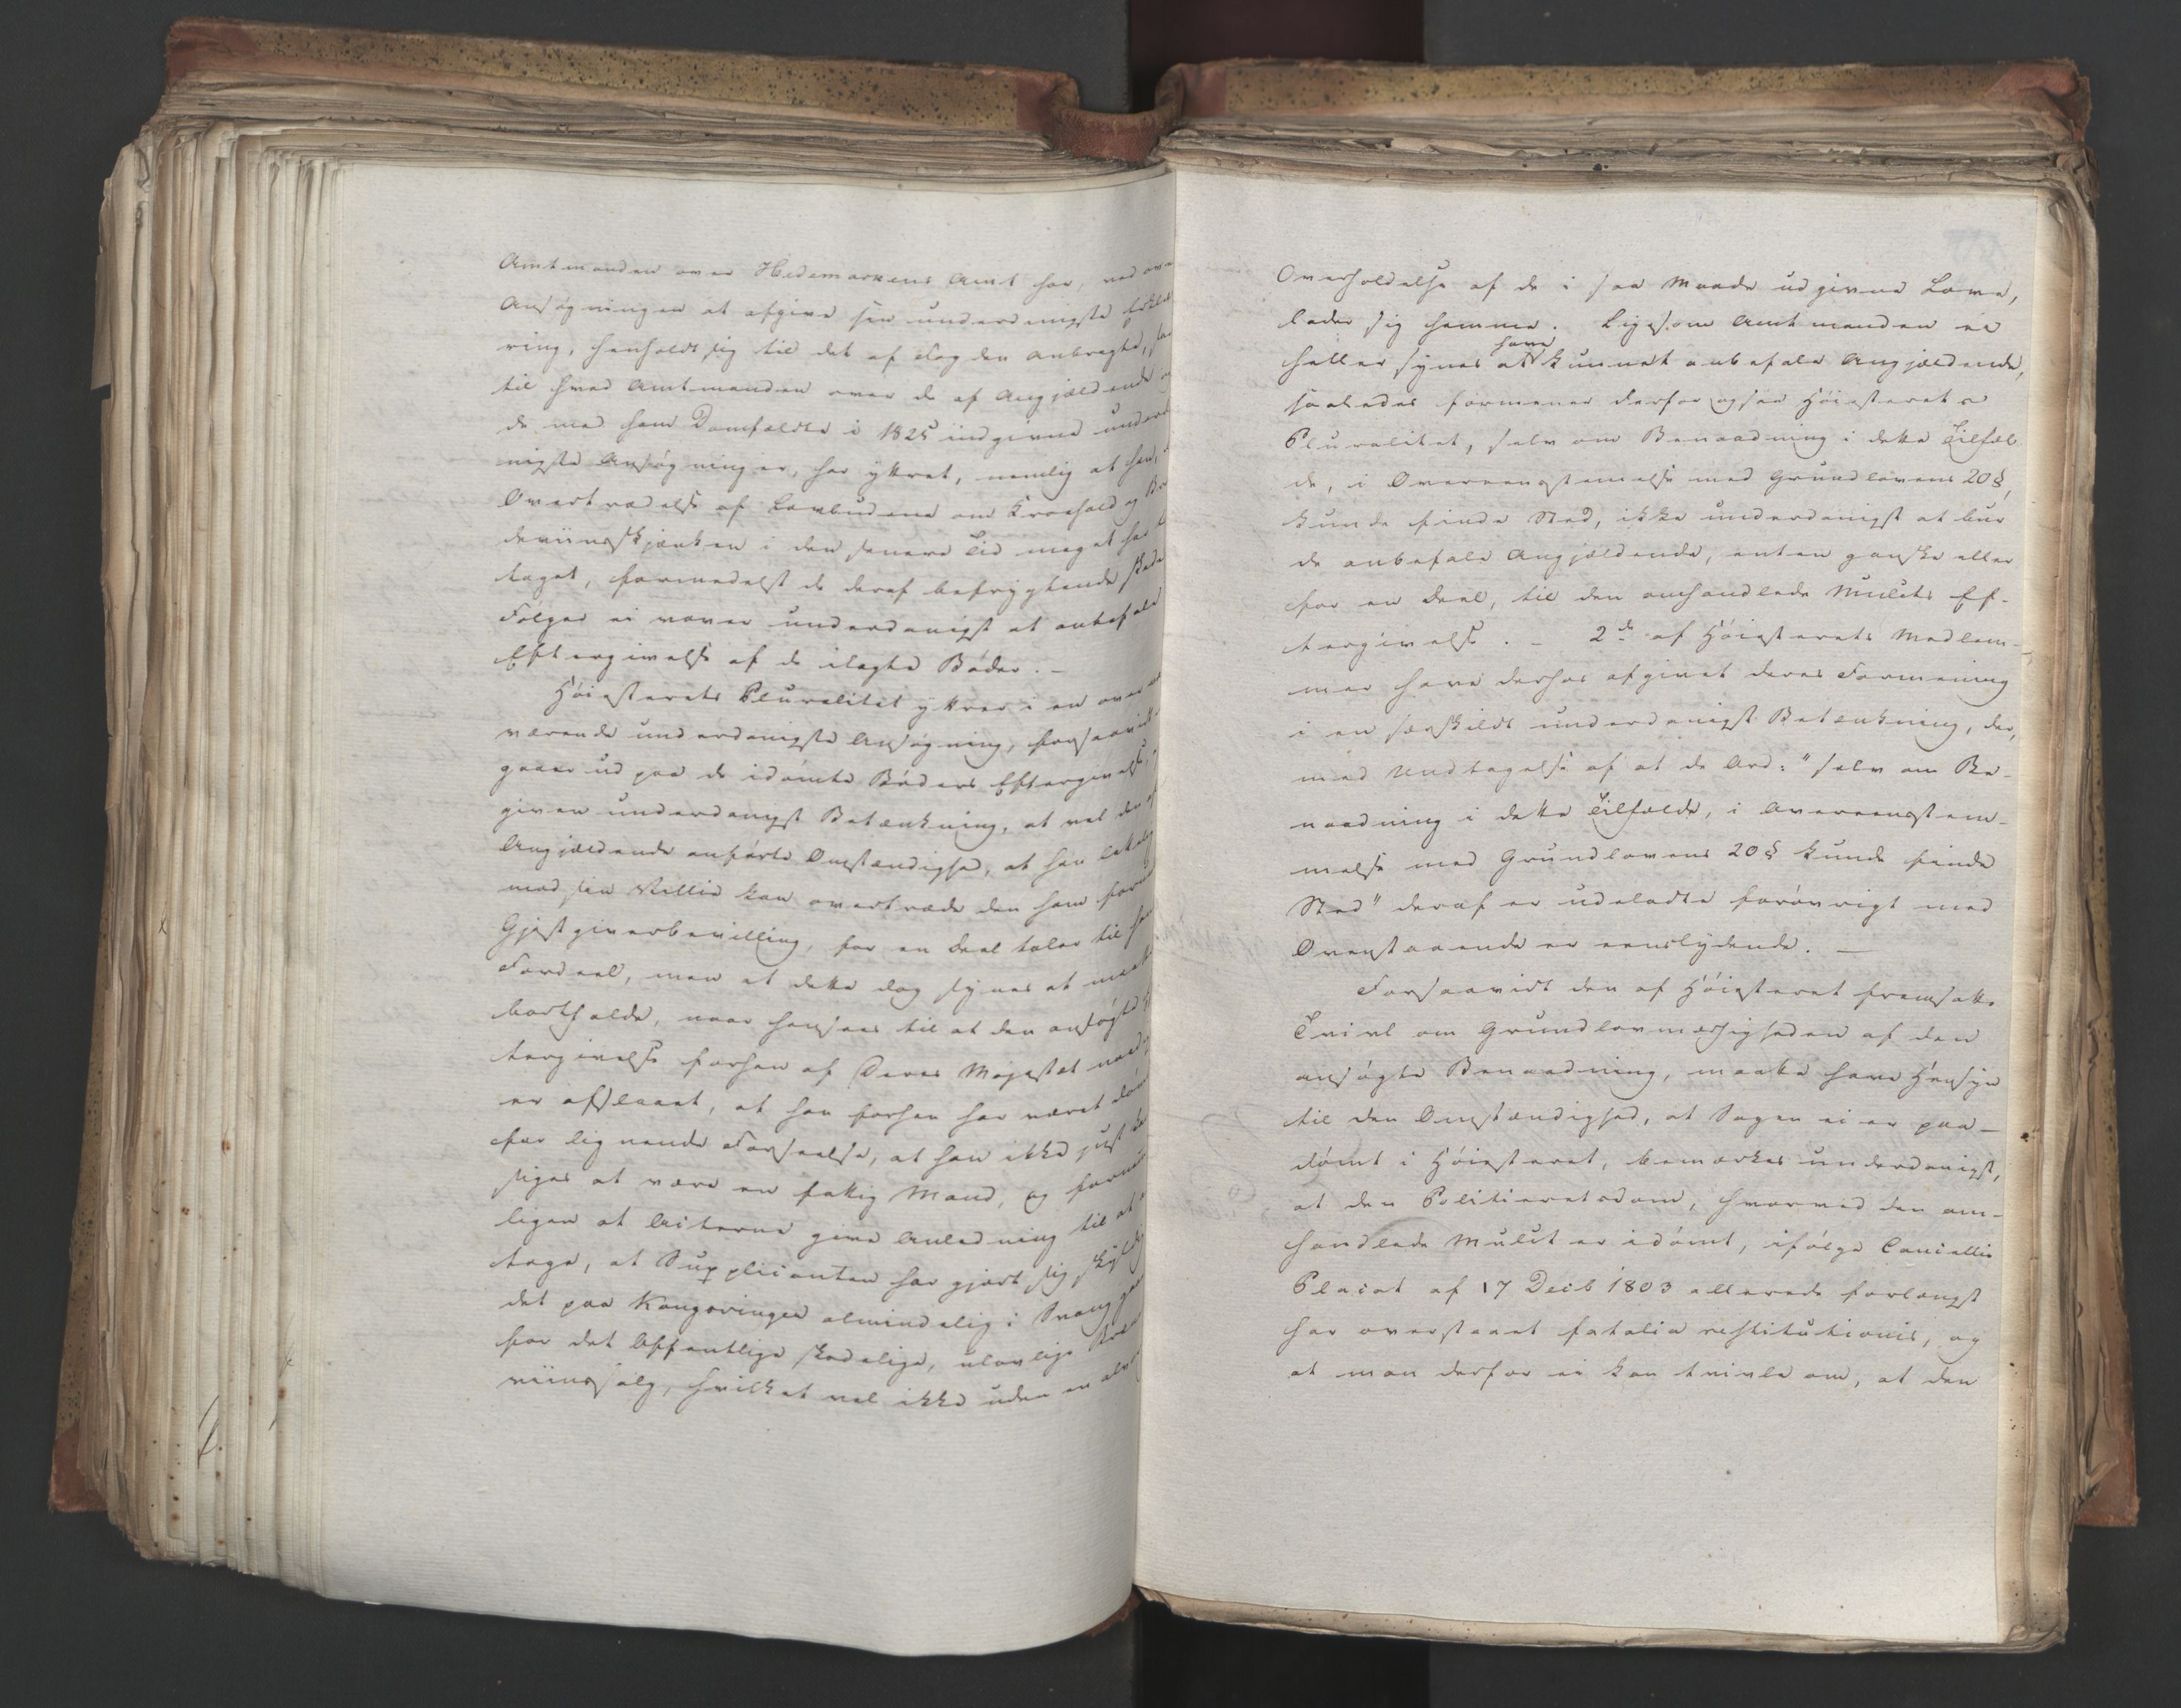 Amtmanden over Hedemarkens Amt har, ved over
Ansøgningen at afgive sin underdanigste Erklæ
ring, henholdt sig til det af Fogden anbragte, saa
til hvad Amtmanden over de af Angjældende og
de med ham Domfældte i 1825 indgivne underda
nigste Ansøgninger, har yttret, nemlig at han,
Overtrædelse af Lovbudene om Kroehold og Bræn
deviinsskjænken i den senere Tid meget har til
taget, formedelst de deraf befrygtende skade
Følger ei vover underdanigst at anbefale
Eftergivelse af de ilagte Bøder. –
Høiesterets Pluralitet yttrer i en over nær
værende underdanigste Ansøgning, forsaavidt
gaaer ud paa de idømte Bøders Eftergivelse,
given underdanigst Betænkning, at vel den af
Angjældende anførte Omstændighed, at han lettelig
mod sin Villie kan overtræde den ham forundte
Gjestgiverbevilling, for en Deel taler til hans
Fordeel, men at dette dog synes at maatte
bortfalde, naar hensees til at den ansøgte Ef
tergivelse forhen af Deres Majestæt naadigst
er afslaaet, at han forhen har været dømt
for lignende Forseelse, at han ikke just kan
siges at være en fattig Mand, og formeent
ligen at Acterne give Anledning til at an
tage, at Supplicanten har gjort sig skyldig
det paa Kongsvinger almindelig i Svang gaaende
for det Offentlige skadelige, ulovlige Brænde
viinssalg, hvilket vel ikke uden en alvor
Overholdelse af de i saa Maade udgivne Love,
lader sig hemme. Ligesom Amtmanden ei
have
heller synes at kunnet anbefale Angjældende,
saaledes formener derfor ogsaa Høiesterets
Pluralitet, selv om Benaadning i dette Tilfæl
de, i Overeenstemmelse med Grundlovens 20 §,
kunde finde Sted, ikke underdanigst at bur
de anbefale Angjældende, enten ganske eller
for en Deel, til den omhandlede Mulcts Ef-
tergivelse. – 2de af Høiesterets Medlem-
mer have derhos afgivet deres Formening
i en særskildt underdanigst Betænkning, der,
med Undtagelse af at de Ord: "selv om Be-
naadning i dette Tilfælde, i Overeenstem-
melse med Grundlovens 20 § kunde finde
Sted" deraf er udeladte forøvrigt med
Ovenstaaende er eenslydende. –
Forsaavidt den af Høiesteret fremsatte
Tvivl om Grundlovmæssigheden af den
ansøgte Benaadning, maatte have Hensyn
til den Omstændighed, at Sagen ei er paa-
dømt i Høiesteret, bemærkes underdanigst,
at den Politieretsdom, hvorved den om-
handlede Mulct er idømt, ifølge Cancellie
Placat af 17 Decb 1803 allerede forlængst
har overstaaet fatalia restitutionis, og
at man derfor ei kan tvivle om, at den